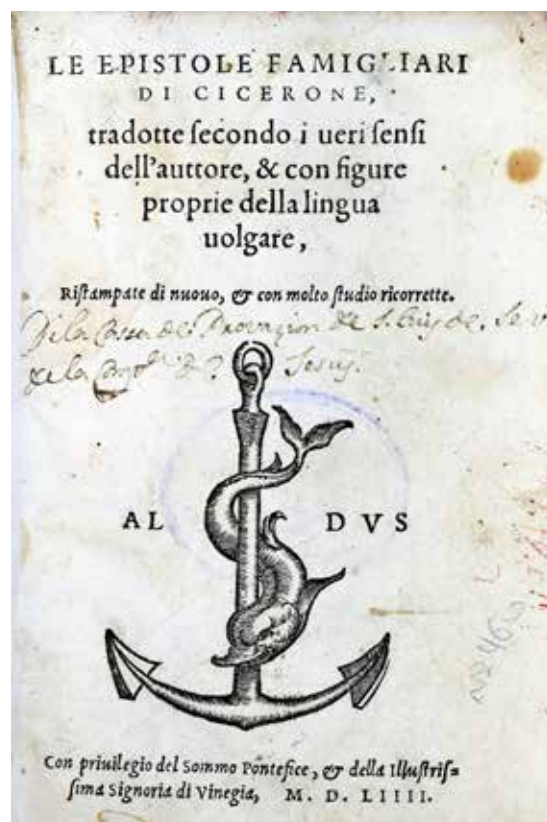 LE EPISTOLE FAMIGLIARI
DI CICERONE,
tradotte ſecondo i ueri ſenſi
dell'auttore, & con figure
proprie della lingua
uolgare,
Riſtampate di nuouo, & con molto ſtudio ricorrette.
de la Casa de Provacion de S. Luis de
de la Compª de Jesus.
AL DVS
Con priuilegio del Sommo Pontefice, & della Illuſtriſ=
ſima Signoria di Vinegia, M. D. LIIII.